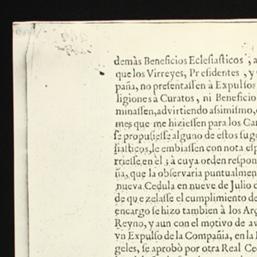 demàs Beneficios Eclesiasticos, a
que los Virreyes, Presidentes, y
paña, no presentassen à Expulsos
ligiones à Curatos, ni Beneficio
minassen, advirtiendo assimismo,
mes que me hiziessen para los Ca
se propusiesse alguno de estos suge
siasticos, le embiassen con nota esp
rriesse en èl; à cuya orden respon
ña, que la observaria puntualmen
nueva Cedula en nueve de Julio d
de que zelasse el cumplimiento de
encargo se hizo tambien à los Arç
Reyno, y aun con el motivo de av
vn Expulso de la Compañia, en la
geles, se aprobò por otra Real Ce